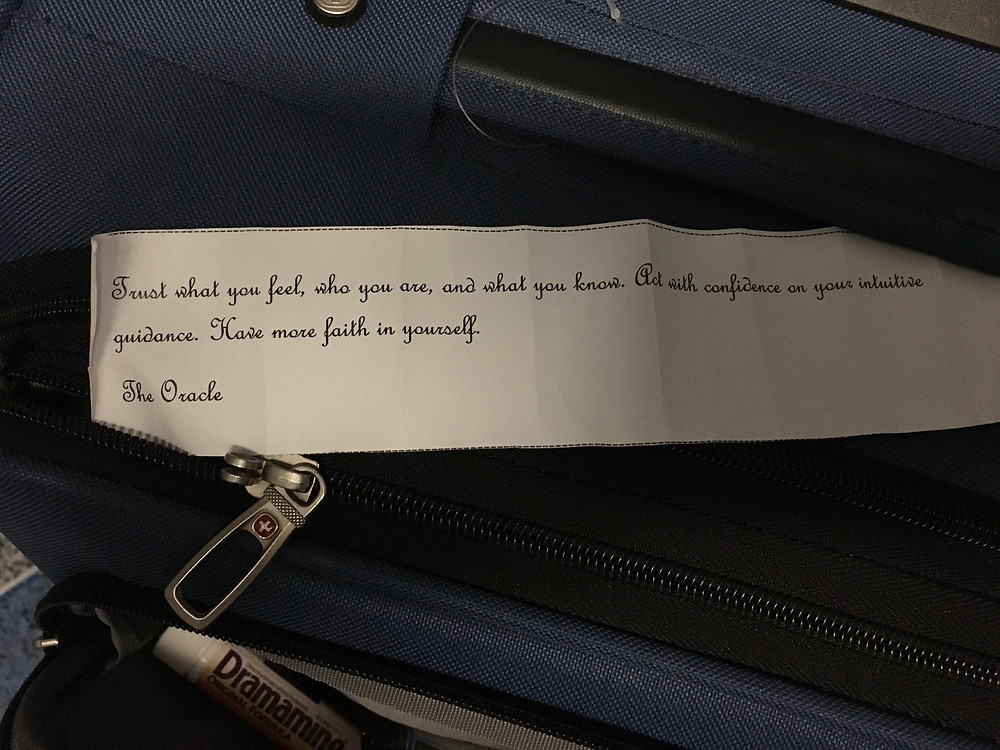 Trust what you feel, who you are, and what you know. Act with confidence on your intuitive
guidance. Have more faith in yourself.
The Oracle
Dramamine
ORIGINAL FORMULA